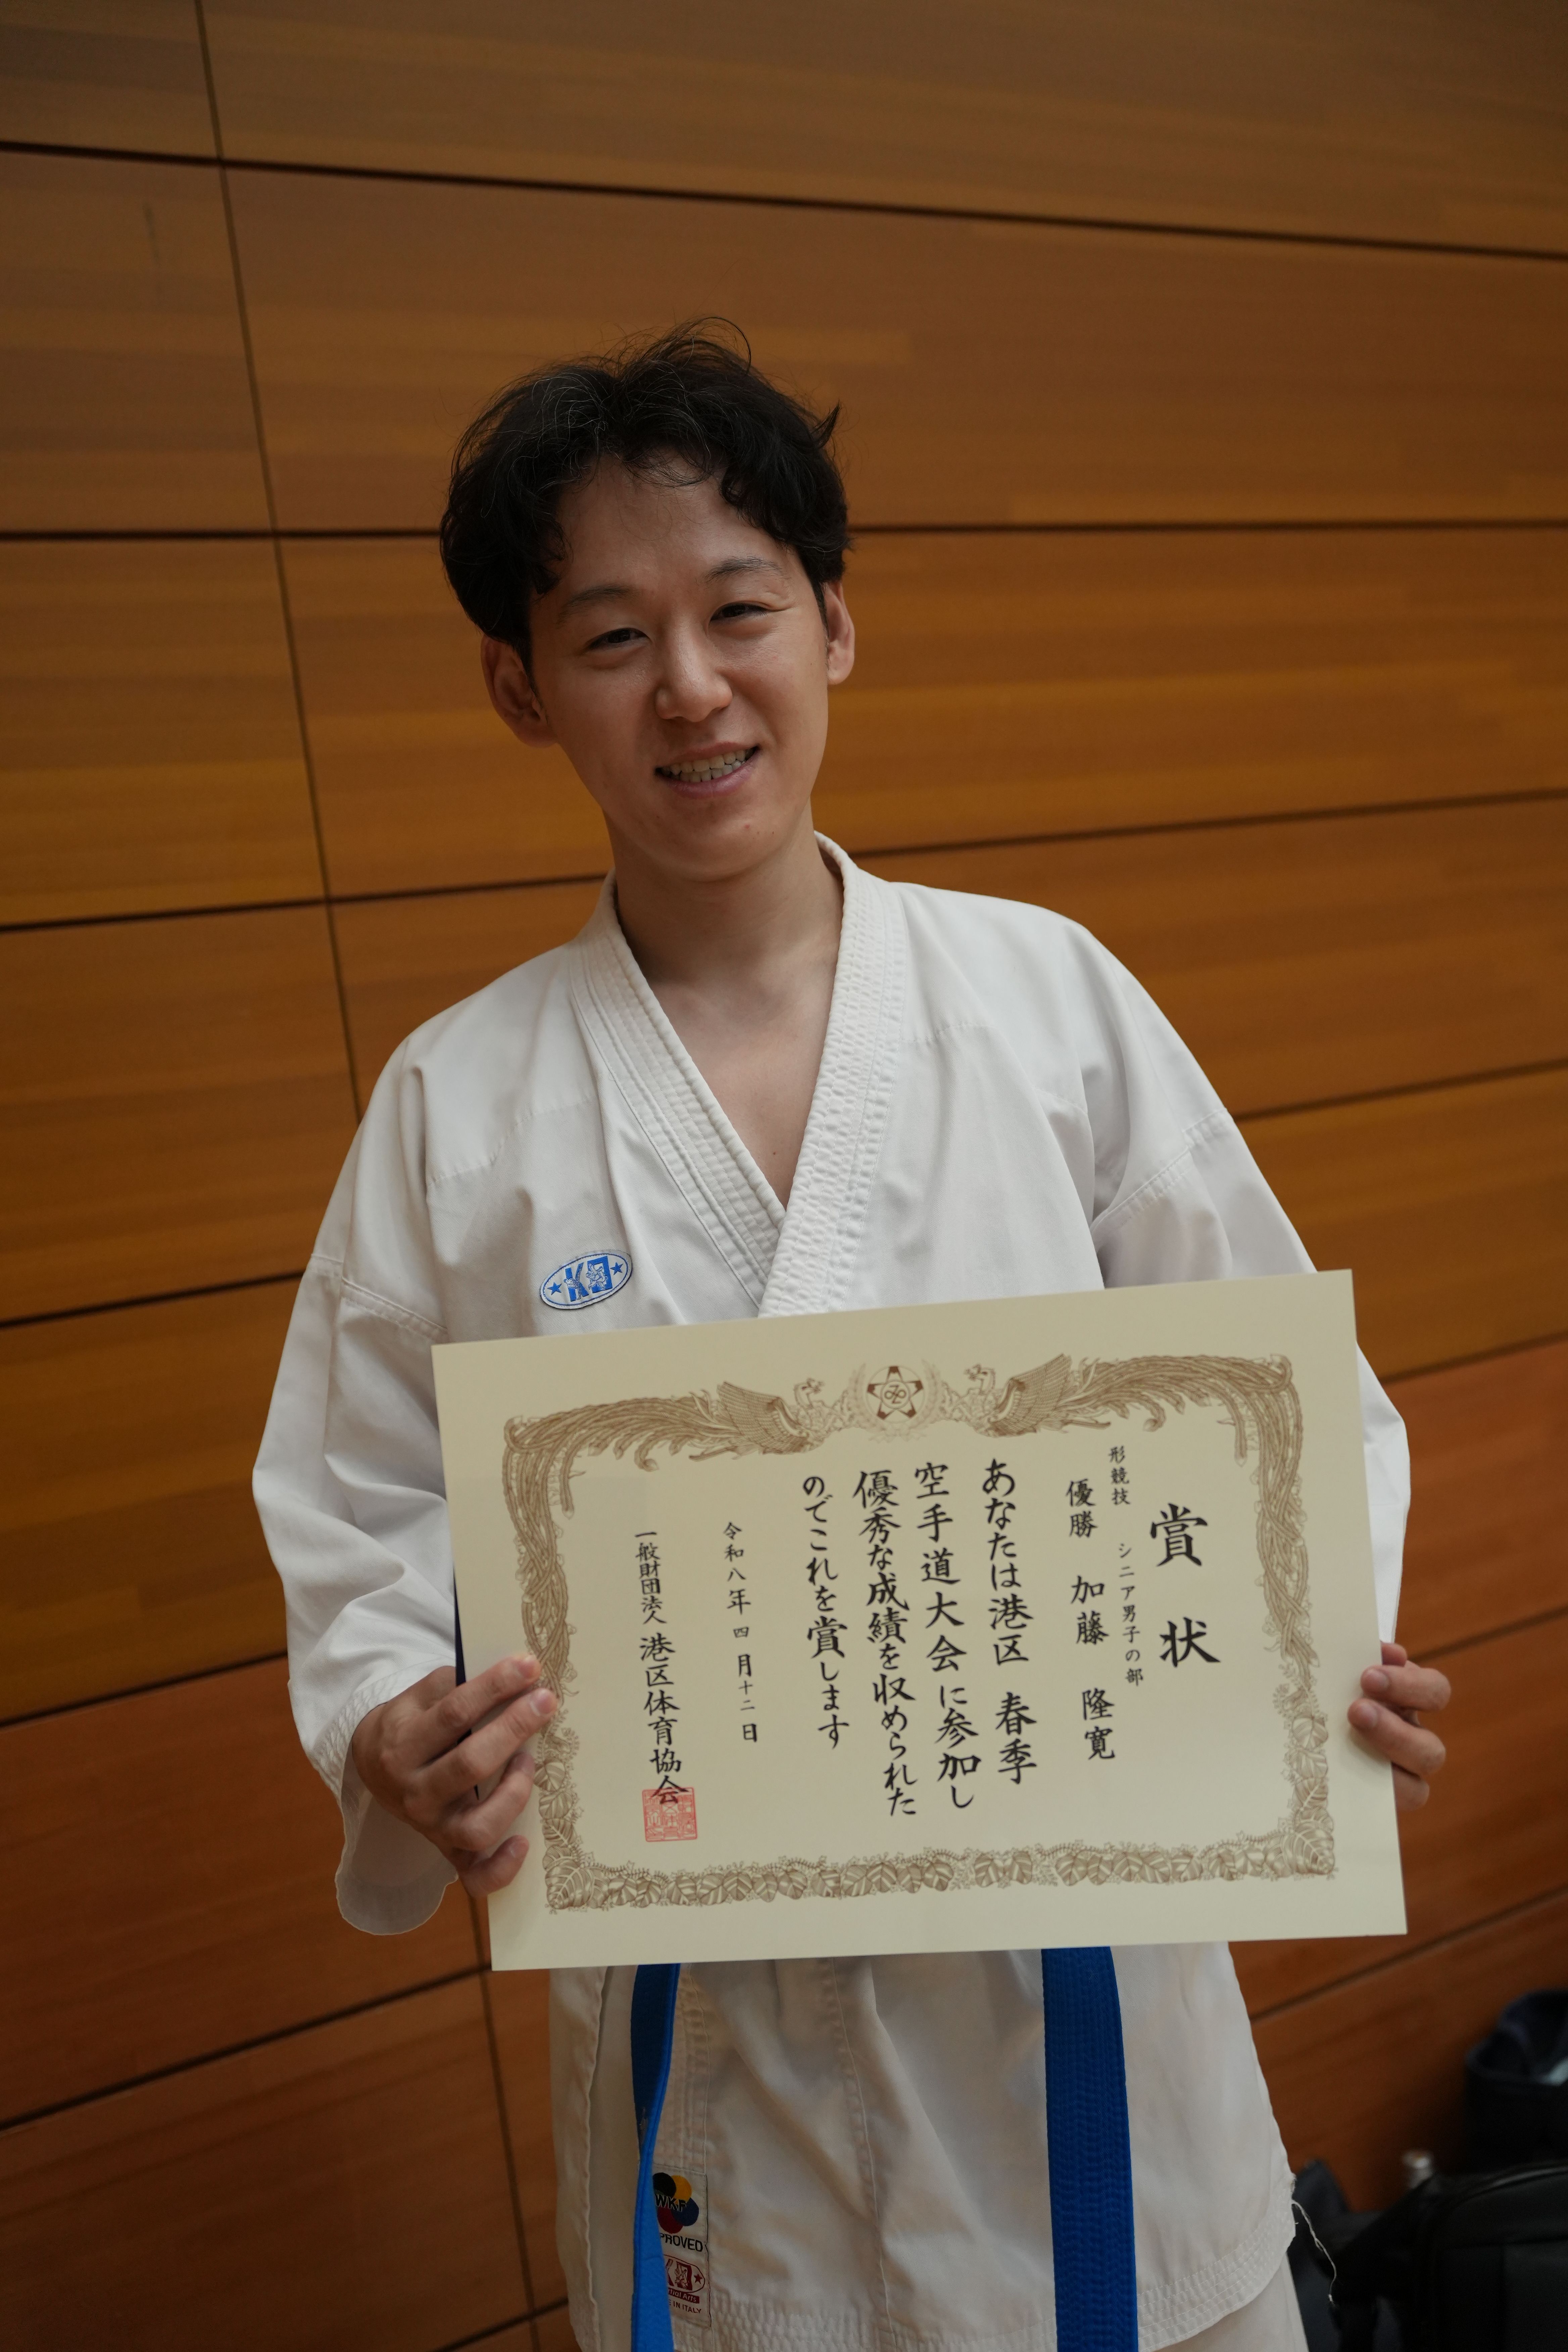 賞状
形競技 シニア男子の部
優勝 加藤 隆寛
あなたは港区 春季
空手道大会に参加し
優秀な成績を収められた
のでこれを賞します
令和八年四月十二日
一般財団法人 港区体育協会
WKF
IN ITALY